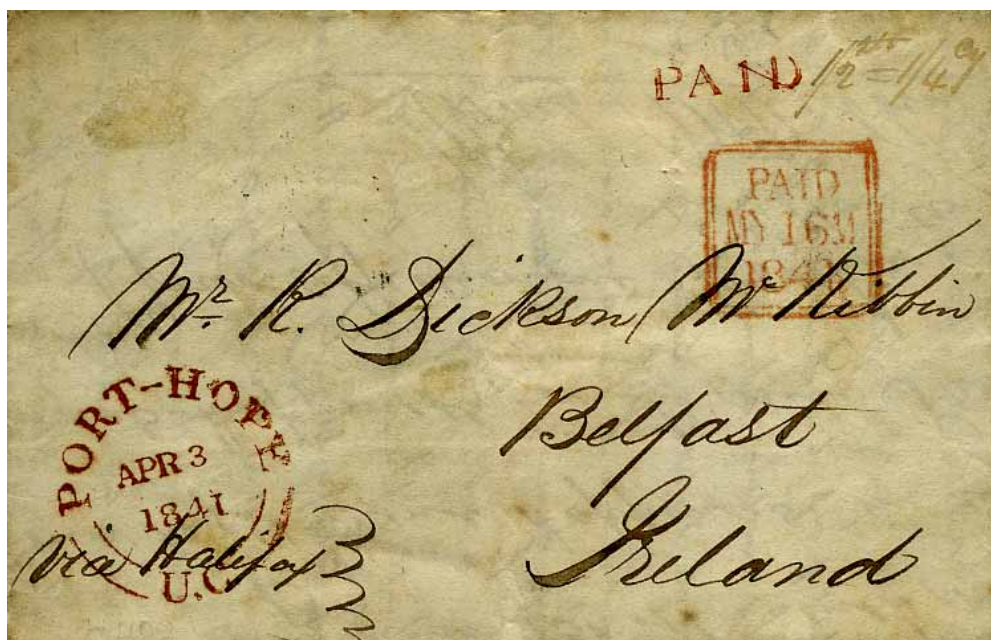 PAID 1/2 stg = 1/4 cy
PAID
MY 16 M
1841
Mr. R. Dickson McKibbin
Belfast
Ireland
PORT-HOPE
APR 3
1841
U.C
via Halifax